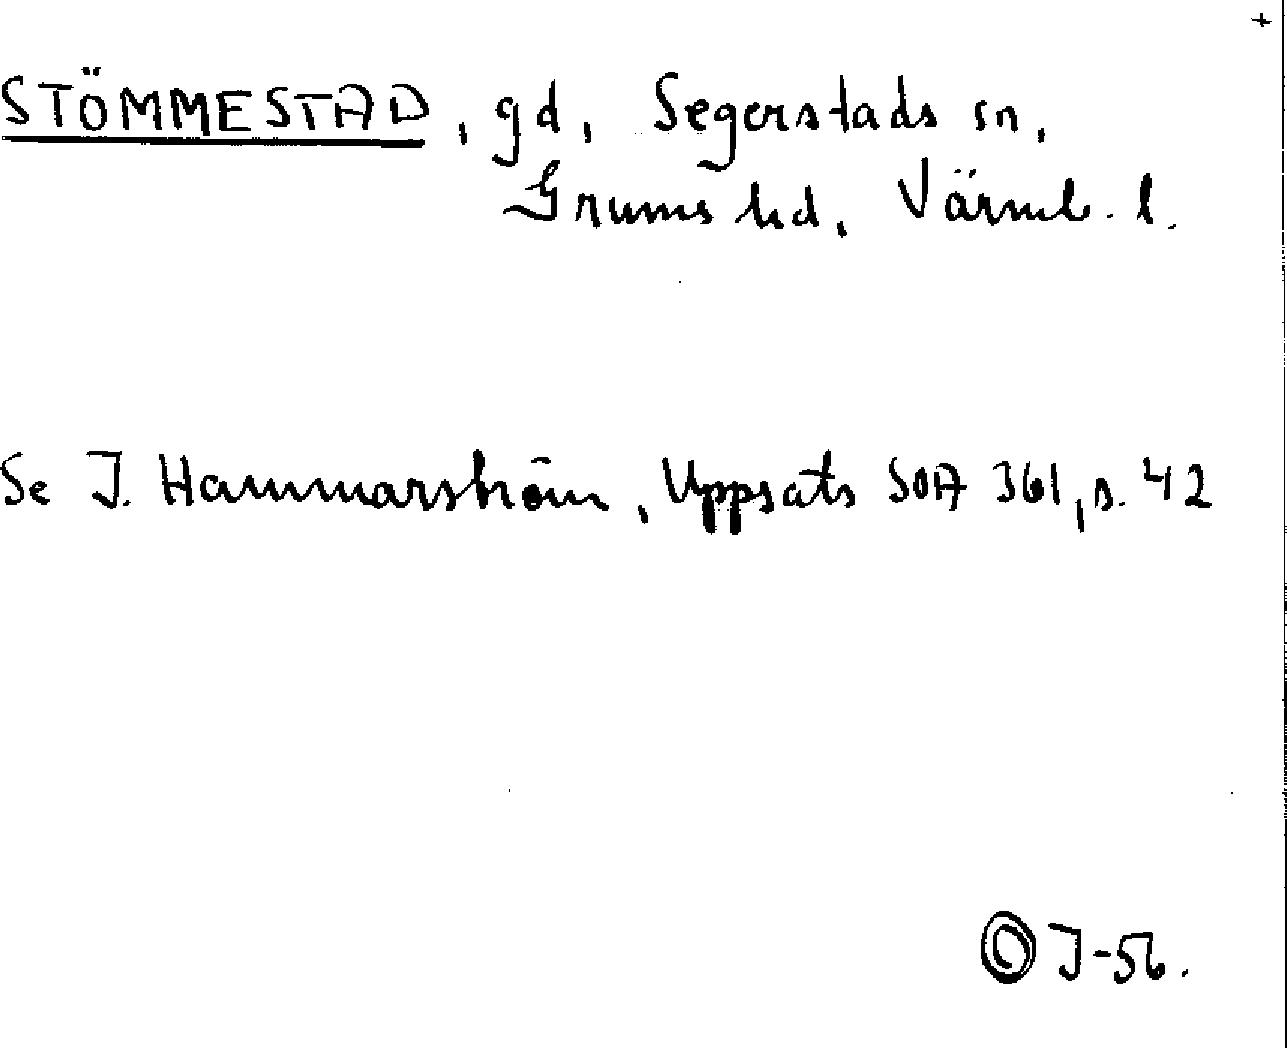 +
STÖMMESTAD, gd, Segerstads sn,
Grums hd, Värml. l.
Se I. Hammarström, Uppsats SOA 361, s. 42
I-56.